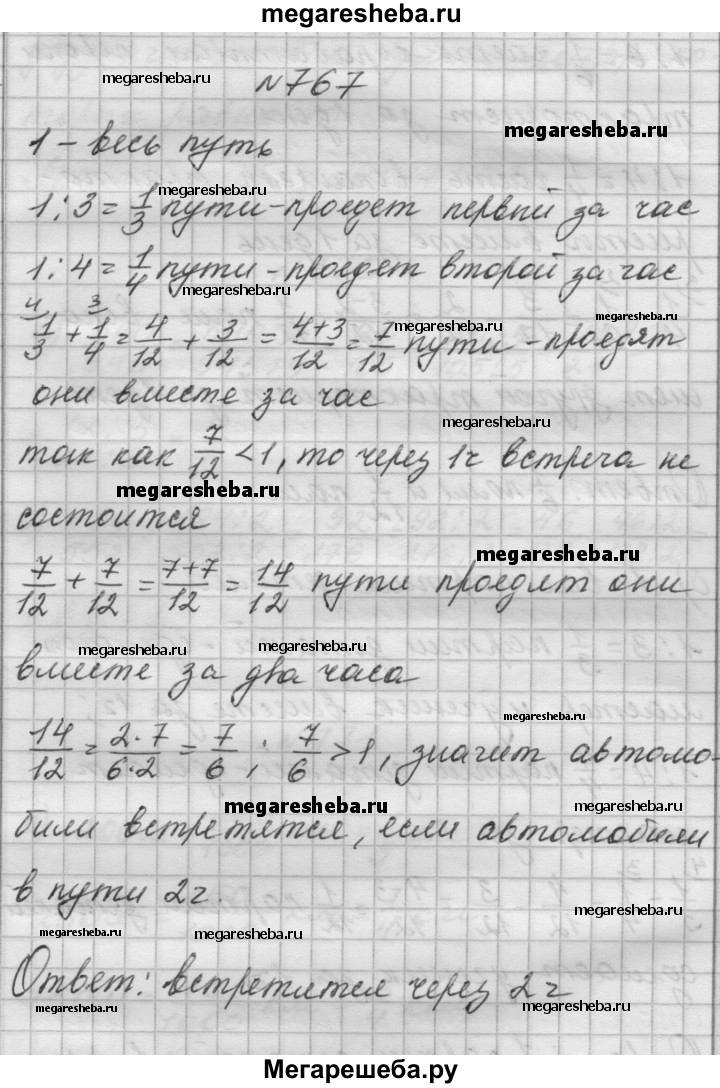 megaresheba.ru
megaresheba.ru
№767
megaresheba.ru
1 – весь путь
megaresheba.ru
1:3 = 1/3 пути – проедет первый за час
1:4 = 1/4 пути – проедет второй за час
megaresheba.ru
megaresheba.ru
4 3
1/3 + 1/4 = 4/12 + 3/12 = 4+3/12 = 7/12 пути – проедят
megaresheba.ru
они вместе за час
megaresheba.ru
так как 7/12 < 1, то через 1ч встреча не
megaresheba.ru
состоится
megaresheba.ru
7/12 + 7/12 = 7+7/12 = 14/12 пути проедят они
megaresheba.ru
megaresheba.ru
вместе за два часа
megaresheba.ru
14/12 = 2·7/6·2 = 7/6, 7/6 > 1, значит автомо-
megaresheba.ru
megaresheba.ru
били встретятся, если автомобили
megaresheba.ru
в пути 2ч.
megaresheba.ru
megaresheba.ru
megaresheba.ru
Ответ: встретятся через 2ч
megaresheba.ru
megaresheba.ru
Мегарешеба.ру